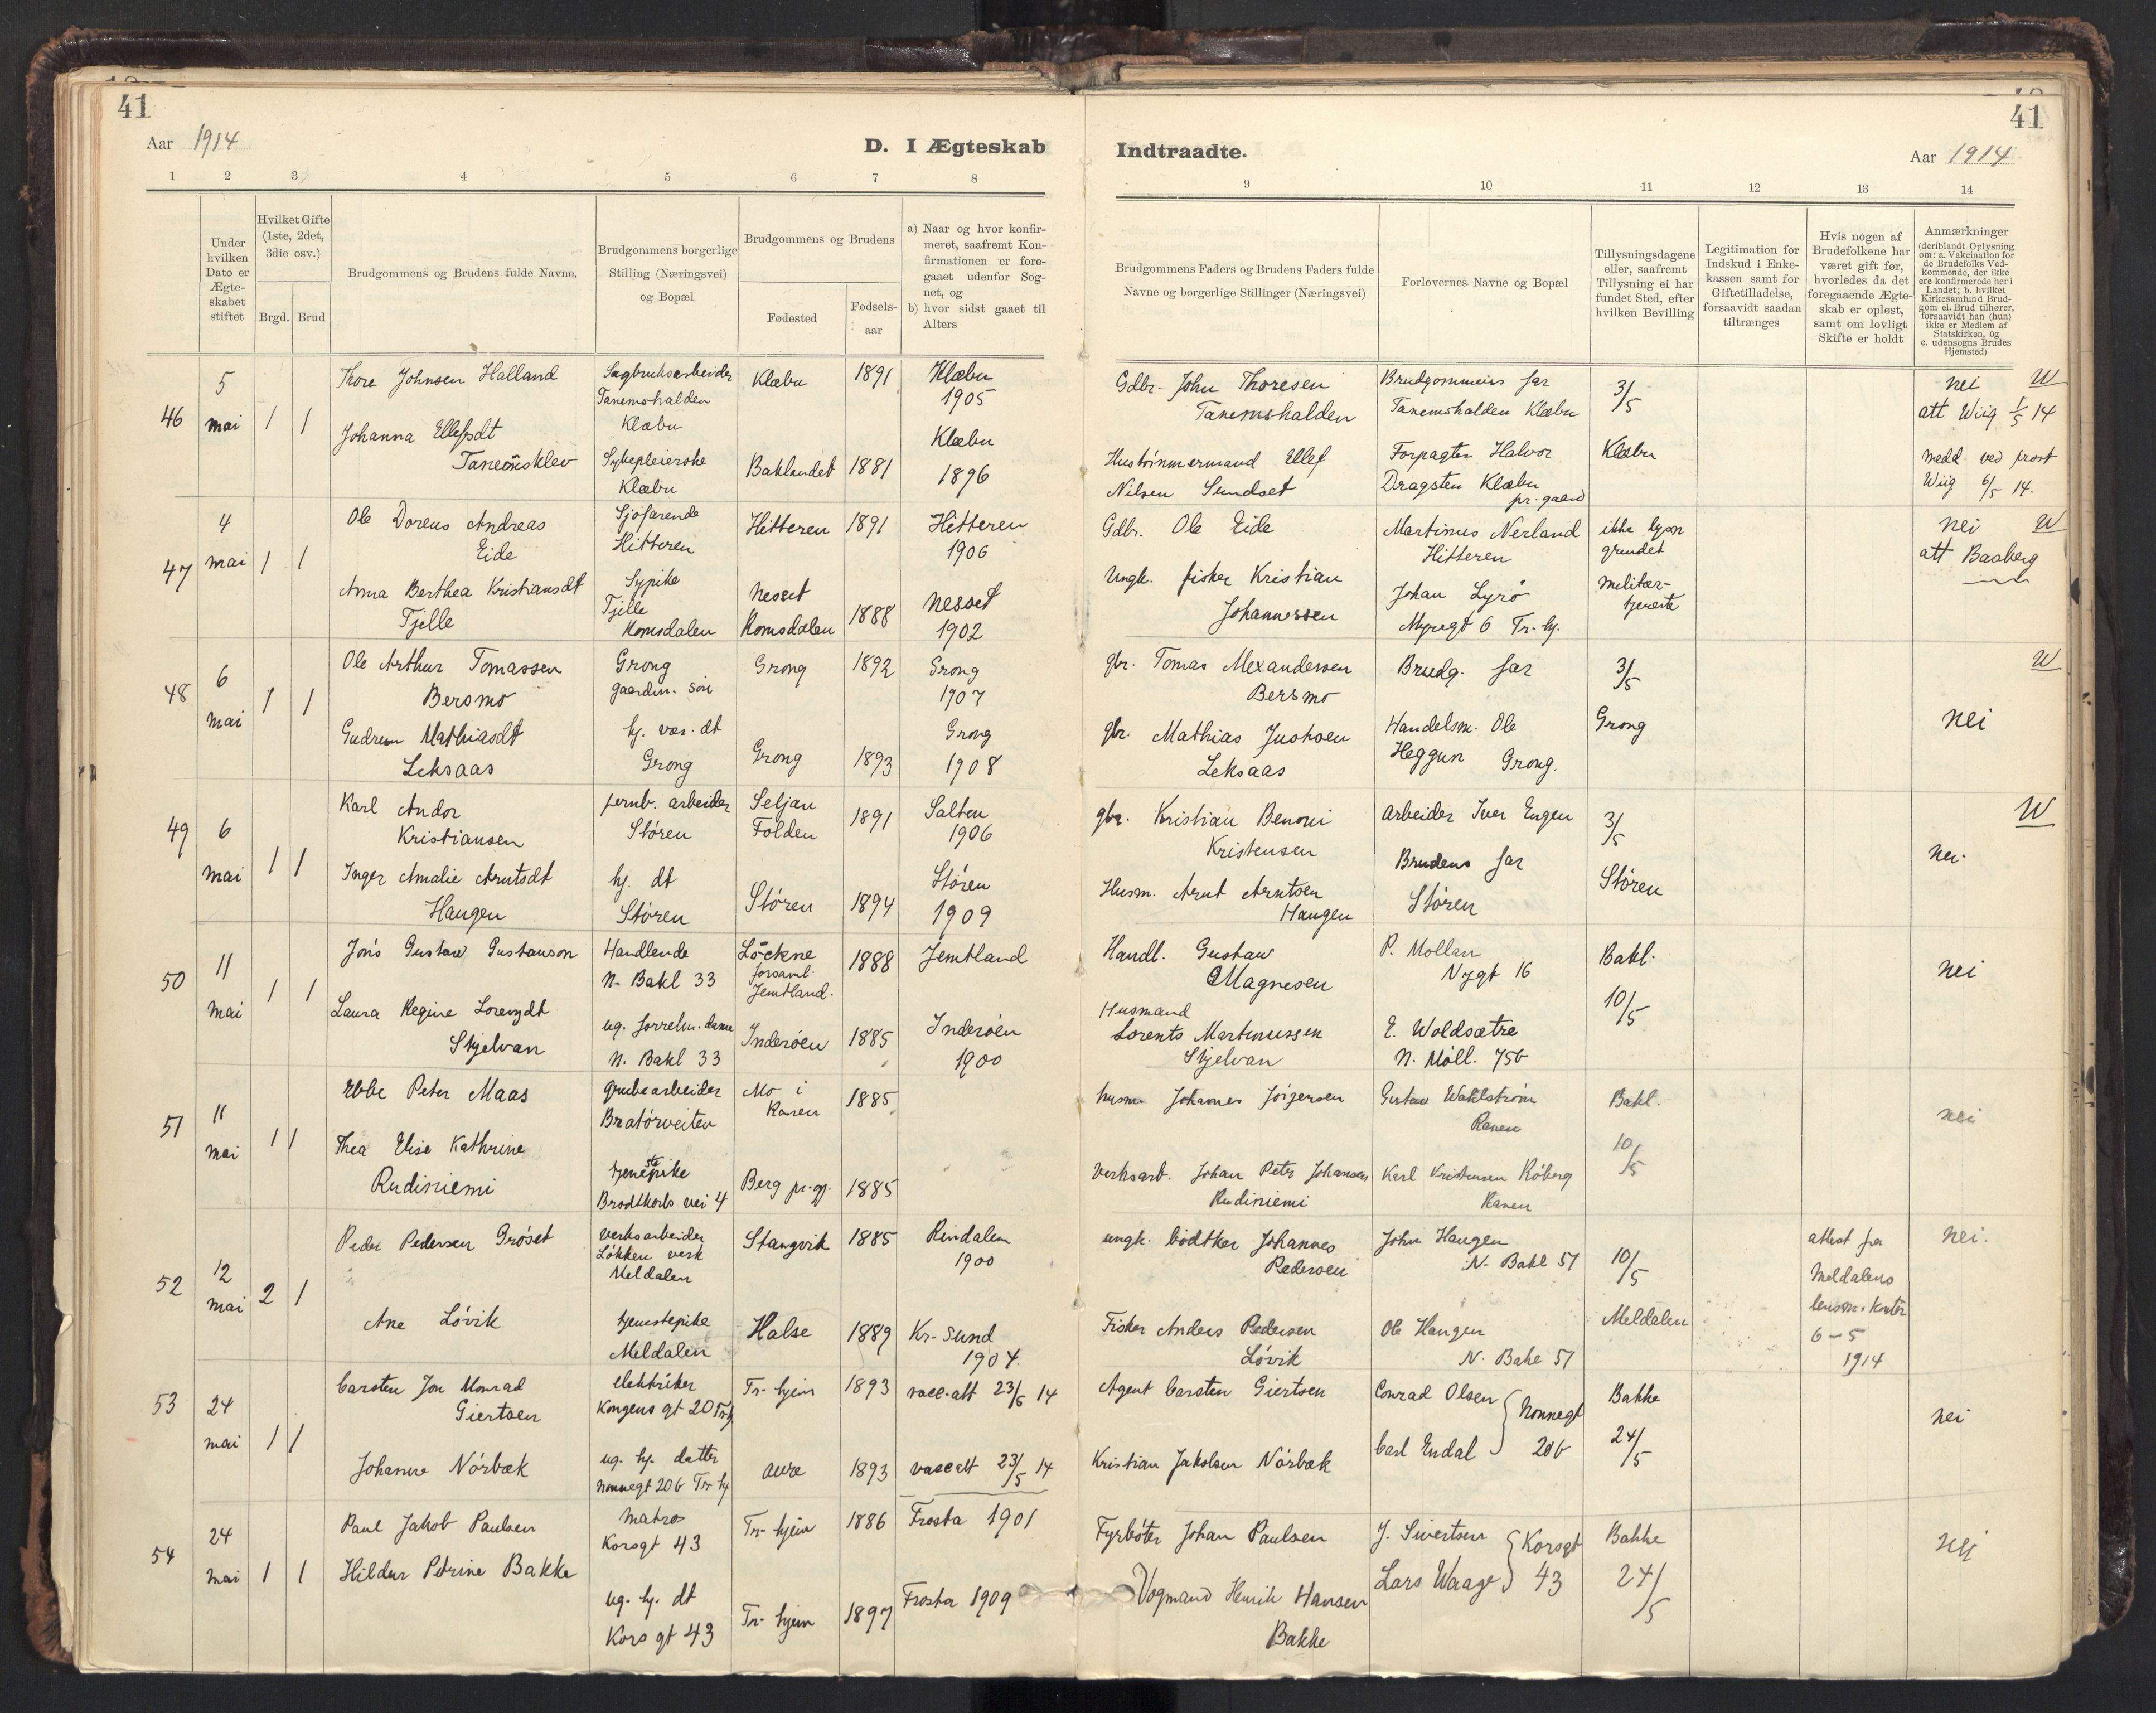 41
Aar 1914
D. I Ægteskab
1 2 3 4 5 6 7 8
Under hvilken Dato er Ægte-skabet stiftet
Hvilket Gifte (1ste, 2det, 3die osv.)
Brgd. Brud
Brudgommens og Brudens fulde Navne.
Brudgommens borgerlige Stilling (Næringsvei) og Bopæl
Brudgommens og Brudens
Fødested
Fødsels-aar
a) Naar og hvor konfir-meret, saafremt Kon-firmationen er fore-gaaet udenfor Sog-net, og
b) hvor sidst gaaet til Alters
46
5 mai
1 1
Thore Johnsen Halland
Sagbruksarbeider
Tanemshalden
Klæbu
Klæbu
1891
Klæbu
1905
Johanna Ellefsdt
Tanemsklev
Sykepleierske
Klæbu
Baklandet
1881
Klæbu
1896
47
4 mai
1 1
Ole Dorens Andreas
Eide
Sjøfarende
Hitteren
Hitteren
1891
Hitteren
1906
Anna Berthea Kristiansdt
Tjelle
Sypike
Tjelle
Romsdalen
Nesset
Romsdalen
1888
Nesset
1902
48
6 mai
1 1
Ole Arthur Tomassen
Bersmo
Grong
gaardm. søn
Grong
1892
Grong
1907
Gudrun Mathiasdt
Leksaas
hj. vær. dt
Grong
Grong
1893
Grong
1908
49
6 mai
1 1
Karl Andor
Kristiansen
jernb. arbeider
Støren
Seljan
Folden
1891
Salten
1906
Inger Amalie Arntsdt
Haugen
hj. dt
Støren
Støren
1894
Støren
1909
50
11 mai
1 1
Jöns Gustav Gustavson
Handlende
N. Bakl 33
Löckne
forsaml.
Jemtland.
1888
Jemtland
Laura Regine Lorenzdt
Skjelvan
ug. forretn. dame
N. Bakl 33
Inderøen
1885
Inderøen
1900
51
11 mai
1 1
Ebbe Peter Maas
grubearbeider
Bratørveiten
Mo i
Ranen
1885
Thea Elise Kathrine
Rudiniemi
tjenestepike
Brodtkorbs vei 4
Berg pr.gj.
1885
52
12 mai
2 1
Peder Pedersen Grøset
verksarbeider
Løkken verk
Meldalen
Stangvik
1885
Rindalen
1900
Ane Løvik
tjenestepike
Meldalen
Halse
1889
Kr.sund
1904.
53
24 mai
1 1
Carsten Jon Monrad
Giertsen
elektriker
Kongens gt 20 Tr.hj.
Tr.hjem
1893
vacc.att 23/5 14
Johanne Nórbæk
ug. hj. datter
Nonnegt 20b Tr.hj
Aure
1893
vaccatt 23/5 14
54
24 mai
1 1
Paul Jakob Paulsen
matros
Korsgt 43
Tr.hjem
1886
Frosta 1901
Hildur Petrine Bakke
ug. hj. dt
Korsgt 43
Tr.hjem
1897
Frosta 1909
41
Indtraadte.
Aar 1914
9 10 11 12 13 14
Brudgommens Faders og Brudens Faders fulde Navne og borgerlige Stillinger (Næringsvei)
Forlovernes Navne og Bopæl
Tillysningsdagene eller, saafremt Tillysning ei har fundet Sted, efter hvilken Bevilling
Legitimation for Indskud i Enke-kassen samt for Giftetilladelse, forsaavidt saadan tiltrænges
Hvis nogen af Brudefolkene har været gift før, hvorledes da det foregaaende Ægte-skab er opløst, samt om lovligt Skifte er holdt
Anmærkninger (deriblandt Oplysning om: a. Vakcination for de Brudefolks Ved-kommende, der ikke ere konfirmerede her i Landet; b. hvilket Kirkesamfund Brud-gom el. Brud tilhører, forsaavidt han (hun) ikke er Medlem af Statskirken, og c. udensogns Brudes Hjemsted)
Gdbr. John Thoresen
Tanemshalden
Brudgommens far
Tanemshalden Klæbu
3/5
Klæbu
nei W
att Wiig 1/5 14
Hustømmermand Ellef
Nilsen Sundset
Forpagter Halvor
Dragsten Klæbu
pr.gaard
medd. ved prost
Wiig 6/5 14.
Gdbr. Ole Eide
Martinus Nerland
Hitteren
ikke lysn
grundet
militær-
tjeneste
nei W
att Baaberg
Ungk. fisker Kristian
Johannessen
Johan Lyrø
Myregt 6 Tr.hj.
gbr. Tomas Alexandersen
Bersmo
Brudg. far
3/5
Grong
W
nei
gbr. Mathias Justsen
Leksaas
Handelsm. Ole
Heggun Grong.
gbr. Kristian Benoni
Kristensen
Arbeider Iver Engen
3/5
Støren
W
nei.
Husm. Arnt Arntsen
Haugen
Brudens far
Støren
Handl. Gustav
Magnesen
P. Mollan
Nygt 16
Bakl.
10/5
nei
Husmand
Lorents Martinussen
Skjelvan
E. Woldsætre
N. Møll. 75b
husm Johannes Jörgersen
Gustav Wahlstrøm
Ranen
Bakl.
10/5
nei
Verksarb. Johan Peter Johansen
Rudiniemi
Karl Kristensen Røberg
Ranen
ungk. bødtker Johannes
Pedersen
John Haugen
N. Bakl 51
10/5
Meldalen
attest fra
Meldalens
lensm. kontor
6-5
1914
nei.
Fisker Anders Pedersen
Løvik
Ole Haugen
N. Bakl 51
Agent Carsten Giertsen
Conrad Olsen
Carl Endal
Nonnegt
20b
Bakke
24/5
nei
Kristian Jakobsen Nórbæk
Fyrbøter Johan Paulsen
J. Sivertsen
Lars Waage
Korsgt
43
Bakke
24/5
nei
Vogmand Henrik Hansen
Bakke